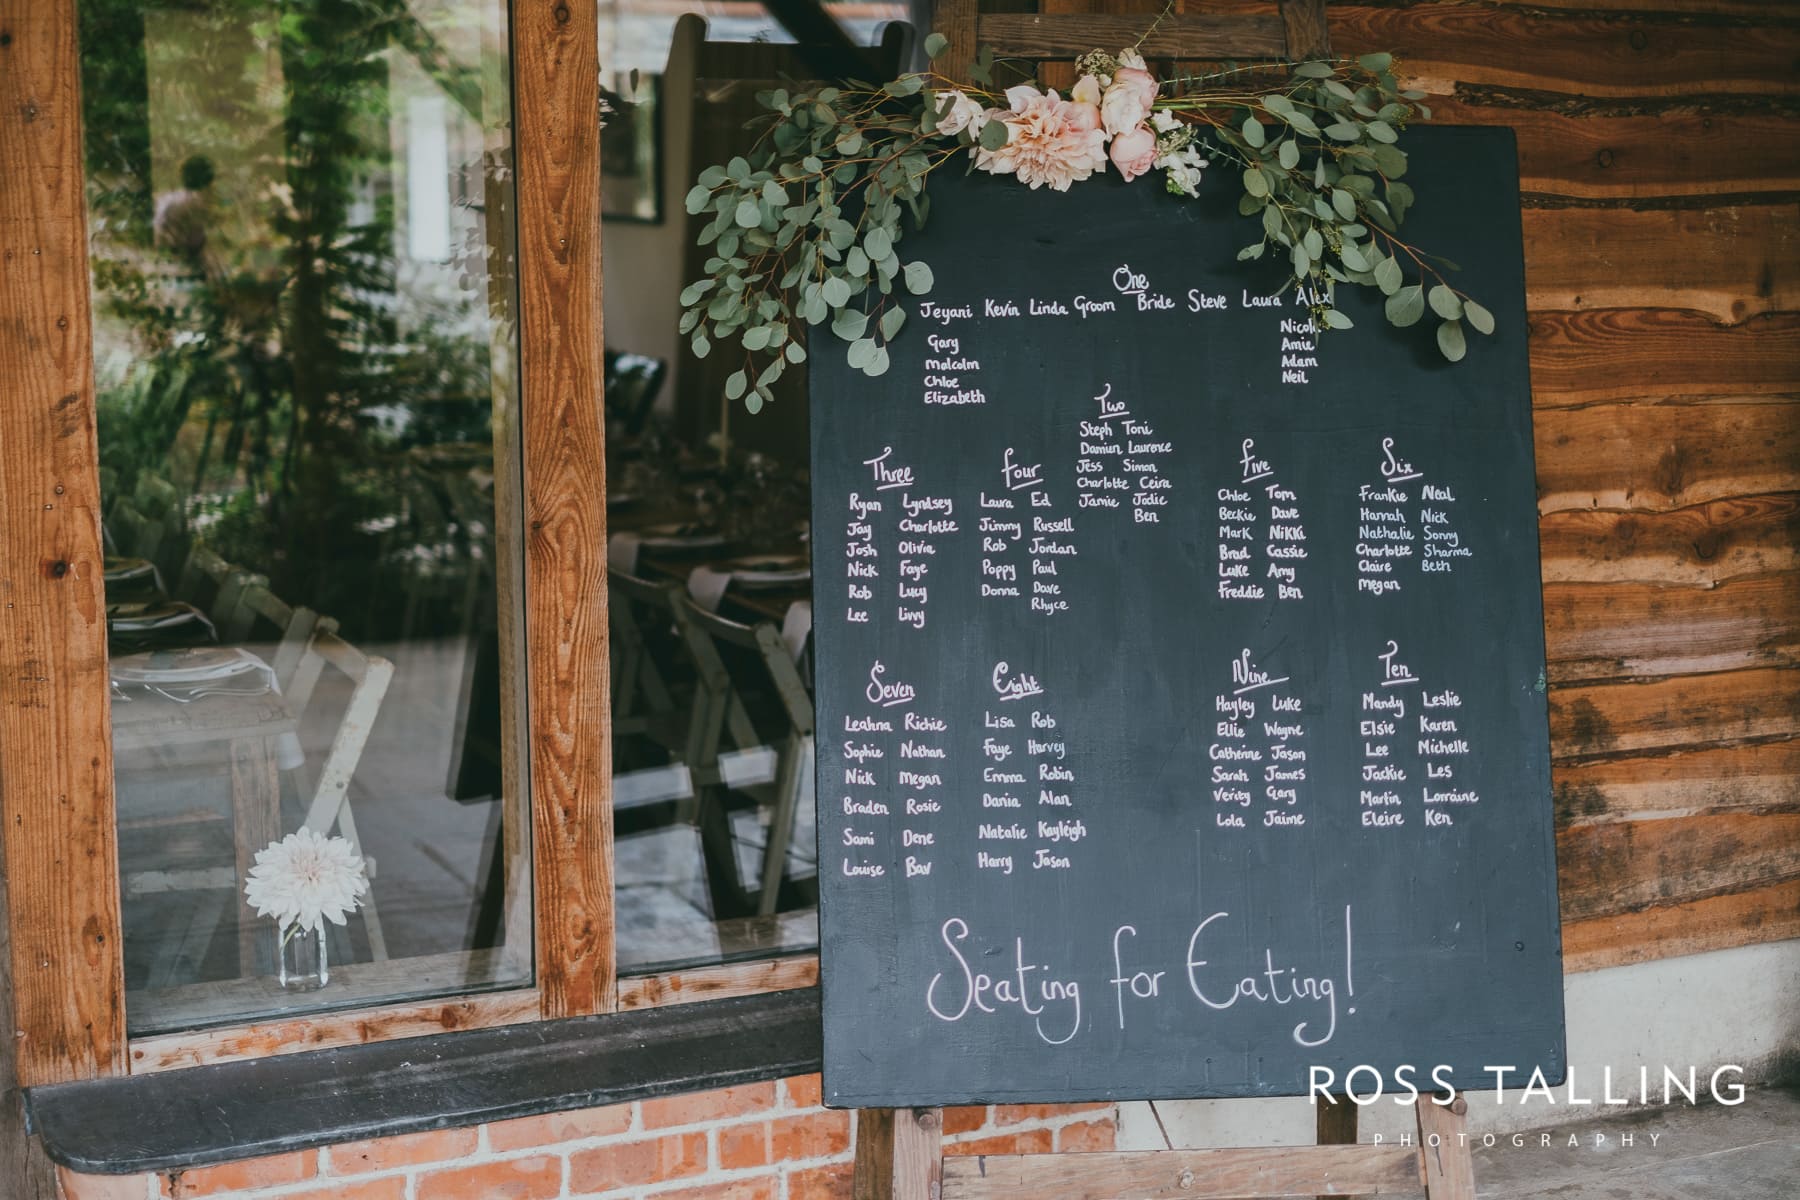 One
Jeyani Kevin Linda Groom Bride Steve Laura Alex
Gary
Malcolm
Chloe
Elizabeth
Nicole
Amie
Adam
Neil
Two
Steph Toni
Damien Laurence
Jess Simon
Charlotte Ceira
Jamie Jodie
Ben
Three
Ryan Lyndsey
Jay Charlotte
Josh Olivia
Nick Faye
Rob Lucy
Lee Livvy
Four
Laura Ed
Jimmy Russell
Rob Jordan
Poppy Paul
Donna Dave
Rhyce
Five
Chloe Tom
Beckie Dave
Mark Nikki
Brad Cassie
Luke Amy
Freddie Ben
Six
Frankie Neal
Hannah Nick
Nathalie Sonny
Charlotte Sharma
Claire Beth
Megan
Seven
Leahna Richie
Sophie Nathan
Nick Megan
Braden Rosie
Sami Dene
Louise Bav
Eight
Lisa Rob
Faye Harvey
Emma Robin
Dania Alan
Natalie Kayleigh
Harry Jason
Nine
Hayley Luke
Ellie Wayne
Catherine Jason
Sarah James
Verity Gary
Lola Jaime
Ten
Mandy Leslie
Elsie Karen
Lee Michelle
Jackie Les
Martin Lorraine
Eleire Ken
Seating for Eating!
ROSS TALLING
PHOTOGRAPHY